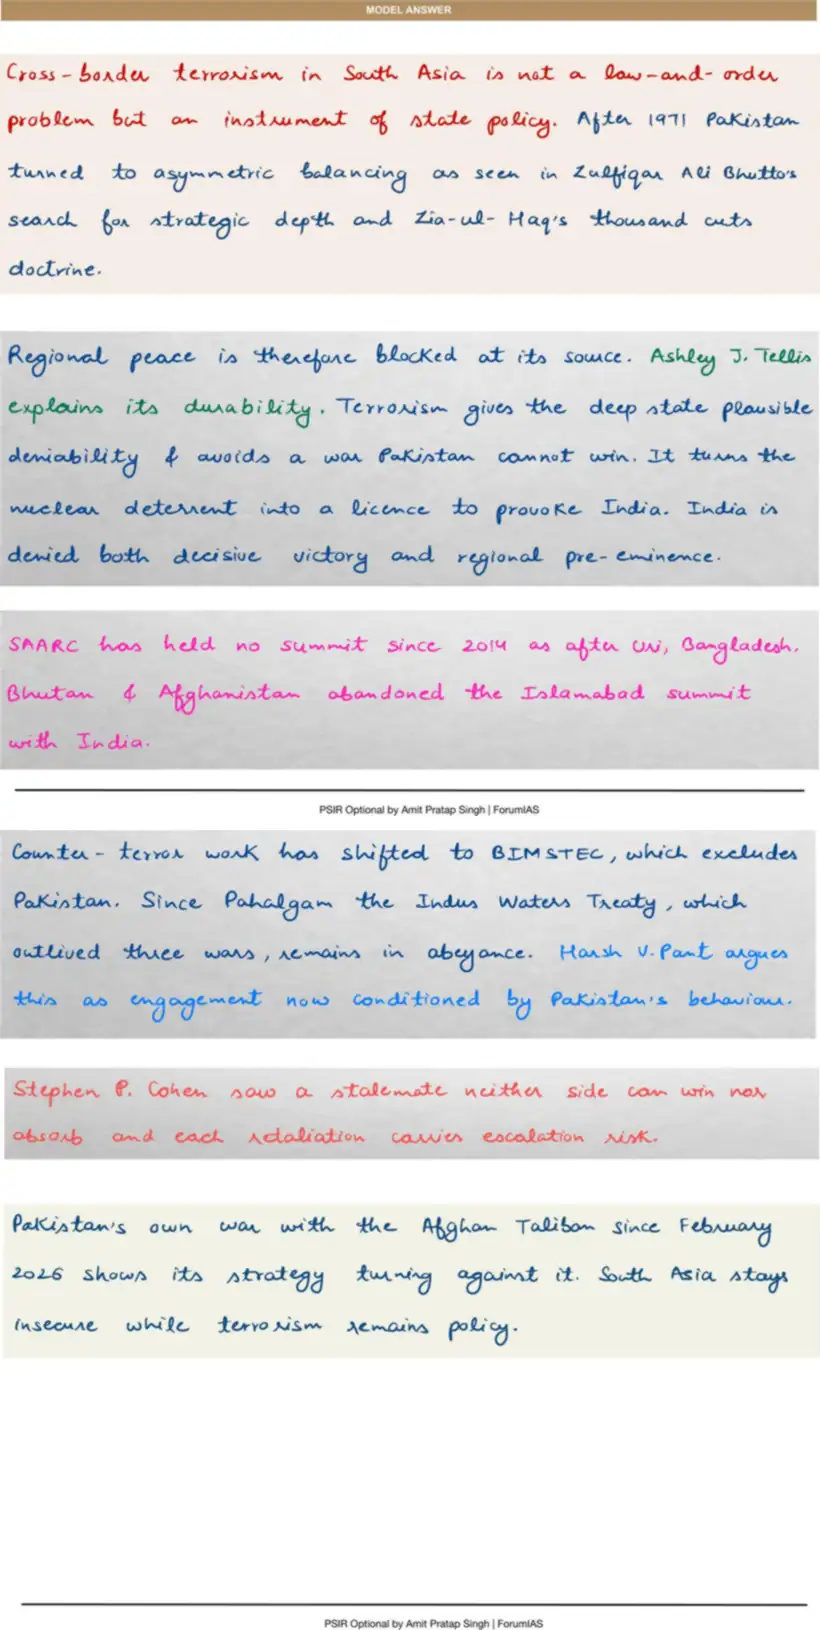 MODEL ANSWER
Cross-border terrorism in South Asia is not a law-and-order
problem but an instrument of state policy. After 1971 Pakistan
turned to asymmetric balancing as seen in Zulfiqar Ali Bhutto's
search for strategic depth and Zia-ul-Haq's thousand cuts
doctrine.
Regional peace is therefore blocked at its source. Ashley J. Tellis
explains its durability. Terrorism gives the deep state plausible
deniability & avoids a war Pakistan cannot win. It turns the
nuclear deterrent into a licence to provoke India. India is
denied both decisive victory and regional pre-eminence.
SAARC has held no summit since 2014 as after Uri, Bangladesh,
Bhutan & Afghanistan abandoned the Islamabad summit
with India.
PSIR Optional by Amit Pratap Singh | ForumIAS
Counter-terror work has shifted to BIMSTEC, which excludes
Pakistan. Since Pahalgam the Indus Waters Treaty, which
outlived three wars, remains in abeyance. Harsh V. Pant argues
this as engagement now conditioned by Pakistan's behaviour.
Stephen P. Cohen saw a stalemate neither side can win nor
absorb and each retaliation carries escalation risk.
Pakistan's own war with the Afghan Taliban since February
2026 shows its strategy turning against it. South Asia stays
insecure while terrorism remains policy.
PSIR Optional by Amit Pratap Singh | ForumIAS